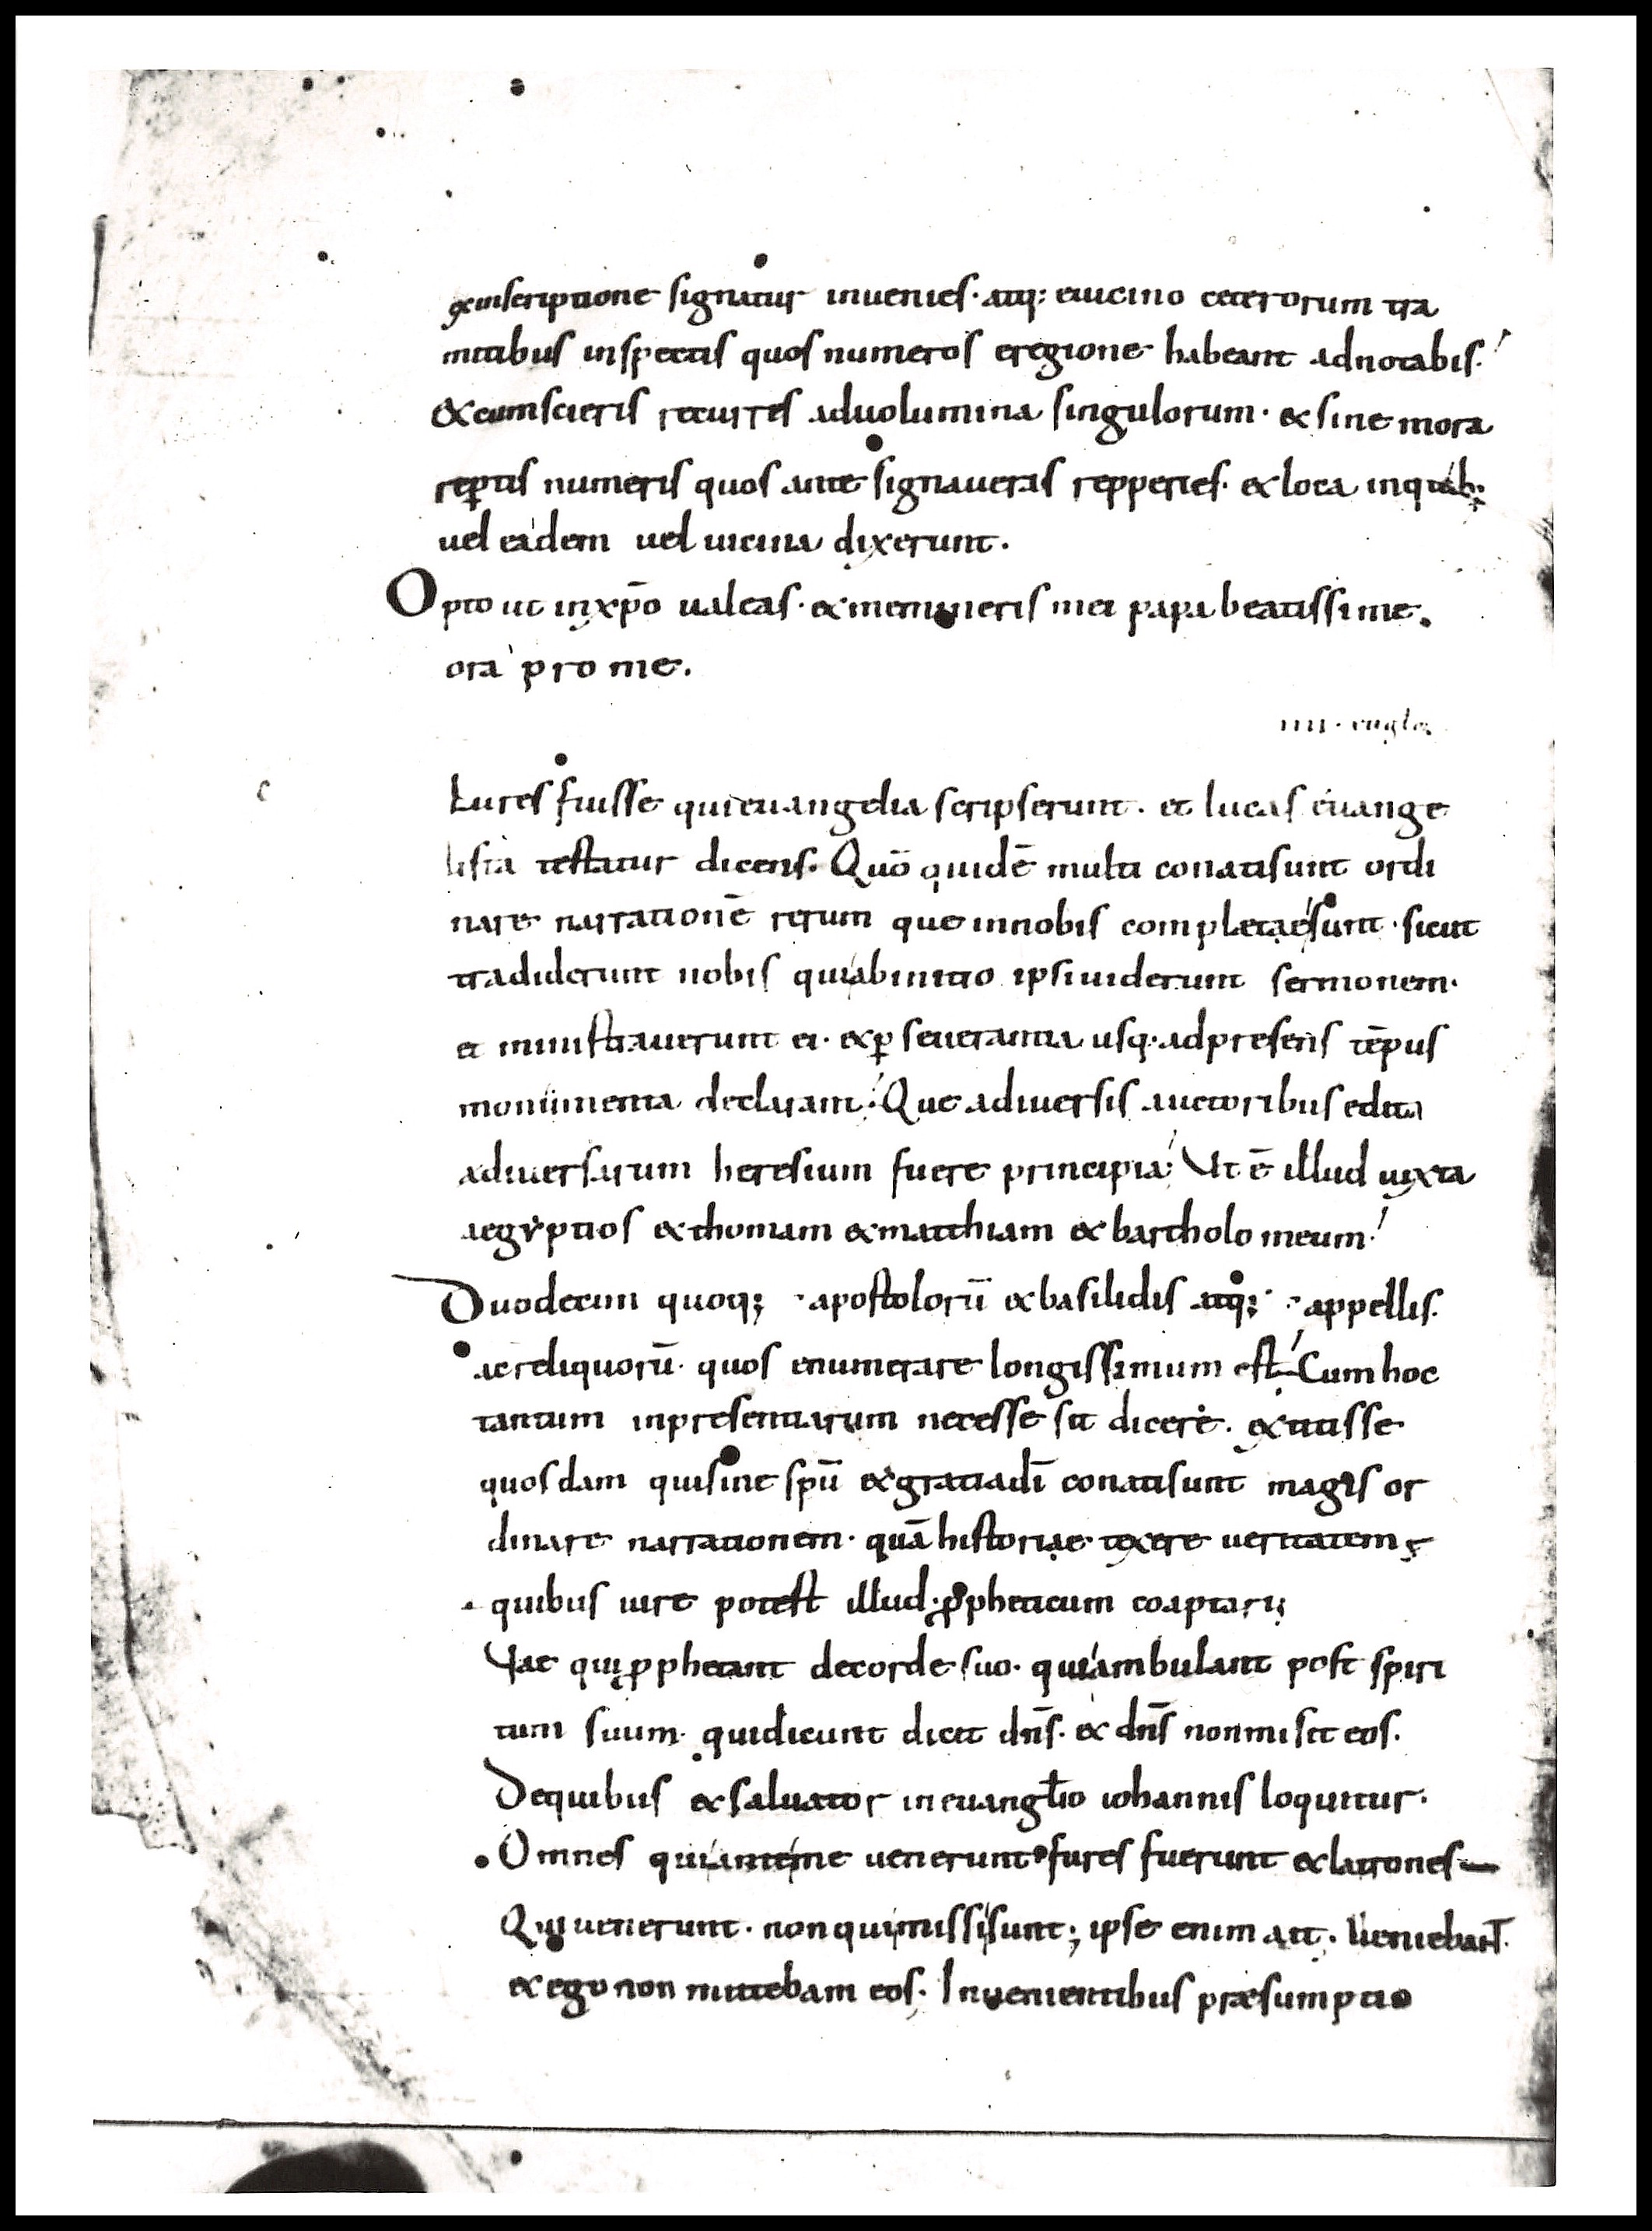 & inscriptione signatur inuenies· atq: euicino ceterorum tra
mitibus inspectis quos numeros eregione habeant adnotabis.
& cum scieris recurres aduolumina singulorum· & sine mora
reptis numeris quos ante signaueras repperies· & loca in quib;
uel eadem uel uicina dixerunt.
Opto ut in xp̄o ualeas· & memineris mei papa beatissime.
ora pro me.
IIII·
Lures fuisse qui euangelia scripserunt· et lucas euange
lista testatur dicens. Quō quidē multi conati sunt ordi
nare narrationē rerum que in nobis completae sunt· sicut
tradiderunt nobis qui ab initio ipsi uiderunt sermonem·
et ministrauerunt ei· & ꝑseuerantia usq· ad presens tēpus
monumenta declarant. Que a diuersis auctoribus edita
a diuersarum heresium fuere principia. Ut ē illud iuxta
aegyptios & thomam & matthiam & bartholomeum.
Duodecim quoq; apostolorū & basilidis atq; appellis.
ac reliquorū· quos enumerare longissimum est. Cum hoc
tantum inpresentiarum necesse sit dicere. extitisse
quosdam qui sine spū & gratia dī conati sunt magis or
dinare narrationem· quā historiae texere ueritatem;
quibus iure potest illud ꝓpheticum coaptari;
Vae qui ꝓphetant de corde suo· qui ambulant post spiri
tum suum· qui dicunt dicit dn̄s· & dn̄s non misit eos.
De quibus & saluator in euanglio iohannis loquitur·
Omnes qui ante me uenerunt fures fuerunt & latrones
Qui uenerunt· non qui missi sunt; ipse enim ait. Ueniebant.
& ego non mittebam eos. In uenientibus præsumptio